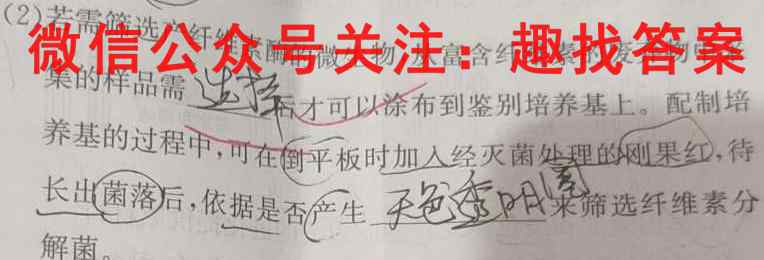 (2)若需筛选产纤维素酶的微生物,从富含纤维素的废弃物中采
微信公众号关注：趣找答案
集的样品需 选择 后才可以涂布到鉴别培养基上。配制培
养基的过程中,可在倒平板时加入经灭菌处理的刚果红,待
长出菌落后,依据是否产生 无色透明圈 来筛选纤维素分
解菌。